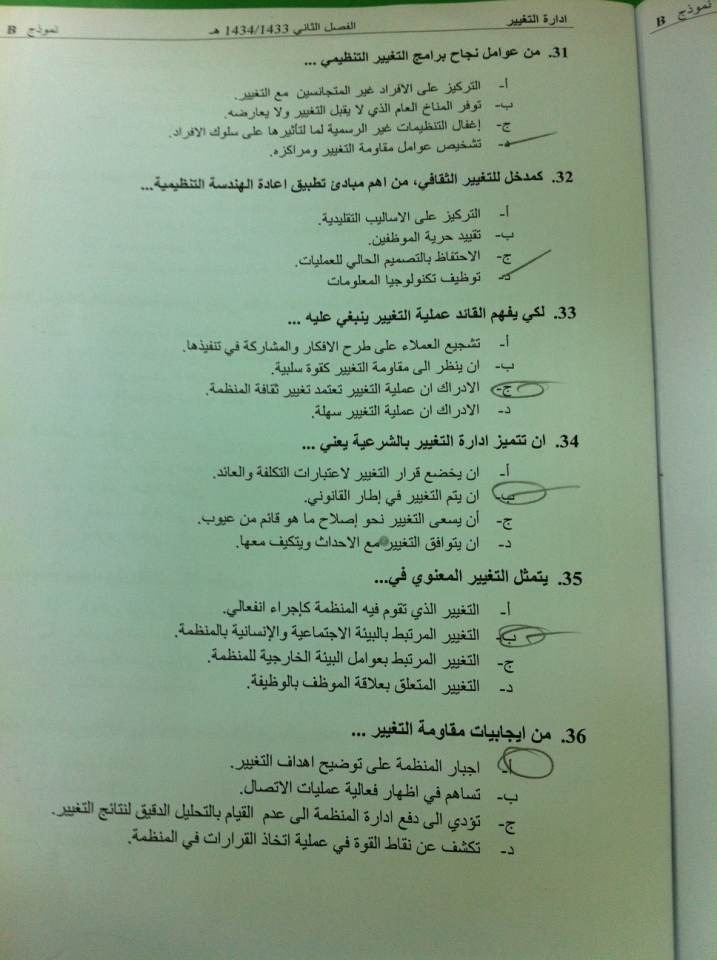 ادارة التغيير
الفصل الثاني 1434/1433 هـ
نموذج B
نموذج B
31. من عوامل نجاح برامج التغيير التنظيمي ...
أ- التركيز على الافراد غير المتجانسين مع التغيير.
ب- توفر المناخ العام الذي لا يقبل التغيير ولا يعارضه.
ج- إغفال التنظيمات غير الرسمية لما لتأثيرها على سلوك الافراد.
د- تشخيص عوامل مقاومة التغيير ومراكزه.
32. كمدخل للتغيير الثقافي، من اهم مبادئ تطبيق اعادة الهندسة التنظيمية...
أ- التركيز على الاساليب التقليدية.
ب- تقييد حرية الموظفين.
ج- الاحتفاظ بالتصميم الحالي للعمليات.
د- توظيف تكنولوجيا المعلومات
33. لكي يفهم القائد عملية التغيير ينبغي عليه ...
أ- تشجيع العملاء على طرح الافكار والمشاركة في تنفيذها.
ب- ان ينظر الى مقاومة التغيير كقوة سلبية.
ج- الادراك ان عملية التغيير تعتمد تغيير ثقافة المنظمة.
د- الادراك ان عملية التغيير سهلة.
34. ان تتميز ادارة التغيير بالشرعية يعني ...
أ- ان يخضع قرار التغيير لاعتبارات التكلفة والعائد.
ب- ان يتم التغيير في إطار القانوني.
ج- أن يسعى التغيير نحو إصلاح ما هو قائم من عيوب.
د- ان يتوافق التغيير مع الاحداث ويتكيف معها.
35. يتمثل التغيير المعنوي في...
أ- التغيير الذي تقوم فيه المنظمة كإجراء انفعالي.
ب- التغيير المرتبط بالبيئة الاجتماعية والإنسانية بالمنظمة.
ج- التغيير المرتبط بعوامل البيئة الخارجية للمنظمة.
د- التغيير المتعلق بعلاقة الموظف بالوظيفة.
36. من ايجابيات مقاومة التغيير ...
أ- اجبار المنظمة على توضيح اهداف التغيير.
ب- تساهم في اظهار فعالية عمليات الاتصال.
ج- تؤدي الى دفع ادارة المنظمة الى عدم القيام بالتحليل الدقيق لنتائج التغيير.
د- تكشف عن نقاط القوة في عملية اتخاذ القرارات في المنظمة.